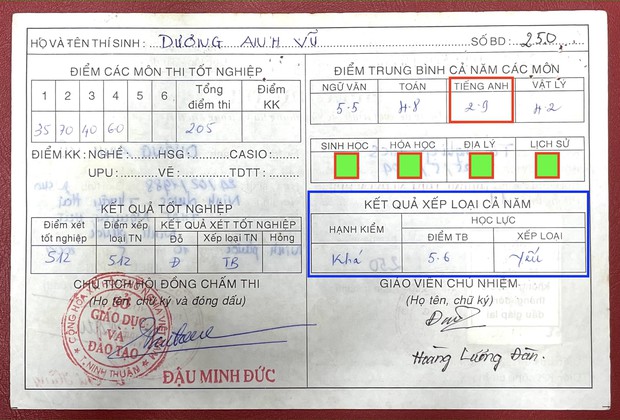 HỌ VÀ TÊN THÍ SINH: DƯƠNG ANH VŨ SỐ BD: 250
ĐIỂM CÁC MÔN THI TỐT NGHIỆP
1 2 3 4 5 6 Tổng điểm thi Điểm KK
35 70 40 60 205
ĐIỂM KK: NGHỀ: HSG: CASIO:
UPU: VẼ: TDTT:
KẾT QUẢ TỐT NGHIỆP
Điểm xét tốt nghiệp Điểm xếp loại TN KẾT QUẢ XÉT TỐT NGHIỆP
Đỗ Xếp loại TN Hỏng
512 512 Đ TB
CHỦ TỊCH HỘI ĐỒNG CHẤM THI
(Họ tên, chữ ký và đóng dấu)
CỘNG HÒA XÃ HỘI CHỦ NGHĨA VIỆT NAM
SỞ
GIÁO DỤC
VÀ
ĐÀO TẠO
T. NINH THUẬN
ĐẬU MINH ĐỨC
ĐIỂM TRUNG BÌNH CẢ NĂM CÁC MÔN
NGỮ VĂN TOÁN TIẾNG ANH VẬT LÝ
5.5 4.8 2.9 4.2
SINH HỌC HÓA HỌC ĐỊA LÝ LỊCH SỬ
KẾT QUẢ XẾP LOẠI CẢ NĂM
HẠNH KIỂM HỌC LỰC
ĐIỂM TB XẾP LOẠI
Khá 5.6 Yếu
GIÁO VIÊN CHỦ NHIỆM
(Họ tên, chữ ký)
Hoàng Lương Đàn.